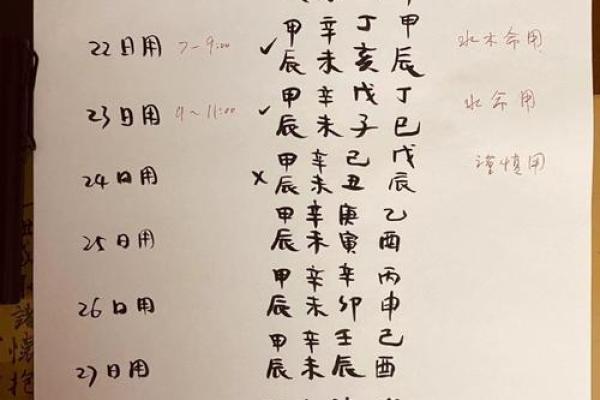 22日用 7-9:00 ✓ 甲辛丁甲 水木命用
辰未亥辰
23日用 9~11:00 ✓ 甲辛戊丁 水命用
辰未子巳
24日用 × 甲辛己戊 谨慎用
辰未丑辰
25日用 甲辛庚乙
辰未寅酉
26日用 甲辛辛丙
辰未卯申
27日用 甲辛壬己
辰未辰酉
諸懷抱